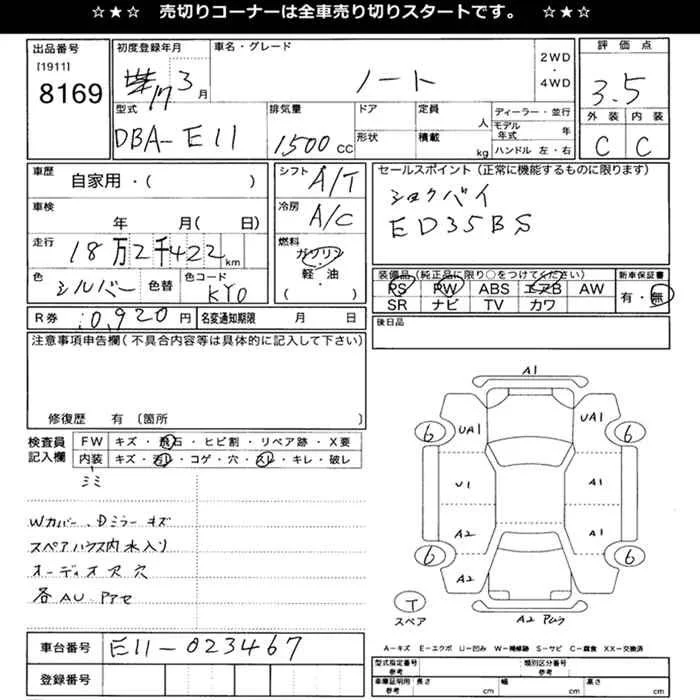 ☆★☆ 売切りコーナーは全車売り切りスタートです。 ☆★☆
出品番号
[1911]
8169
初度登録年月
17 3 月
車名・グレード
ノート
2WD
・
4WD
評価点
3.5
外装 内装
C C
型式
DBA-E11
排気量
1500 CC
ドア
形状
定員
人
積載
kg
ディーラー・並行
モデル年式 年
ハンドル 左・右
車歴
自家用・( )
シフト
A/T
セールスポイント(正常に機能するものに限ります)
ショクバイ
ED35BS
車検
年 月( 日)
冷房
A/C
走行
18万2千422km
燃料
ガソリン
軽・油
( )
色
シルバー
色替
色コード
KY0
装備品(純正品に限り○をつけてください)
PS PW ABS エアB AW
SR ナビ TV カワ
新車保証書
有・無
R券
:0,920円
名変通知期限 月 日
後日品
注意事項申告欄(不具合内容等は具体的に記入して下さい)
修復歴 有〔箇所
検査員
記入欄
FW キズ・飛石・ヒビ割・リペア跡・X要
内装 キズ・汚れ・コゲ・穴・スレ・キレ・破レ
ミミ
Wカバー、Dミラーキズ
スペアハウス内水入り
オーディオ穴
各AU
A1
6 UA1 UA1 6
U1 A1
A2 A1
6 6
A2
A2
T
スペア
A-キズ E-エクボ U-凹み W-補修跡 S-サビ C-腐食 XX-交換済
車台番号
E11-023467
登録番号
型式指定番号
参考
類別区分番号
参考
車庫証明用
参考
長さ cm
幅 cm
高さ cm